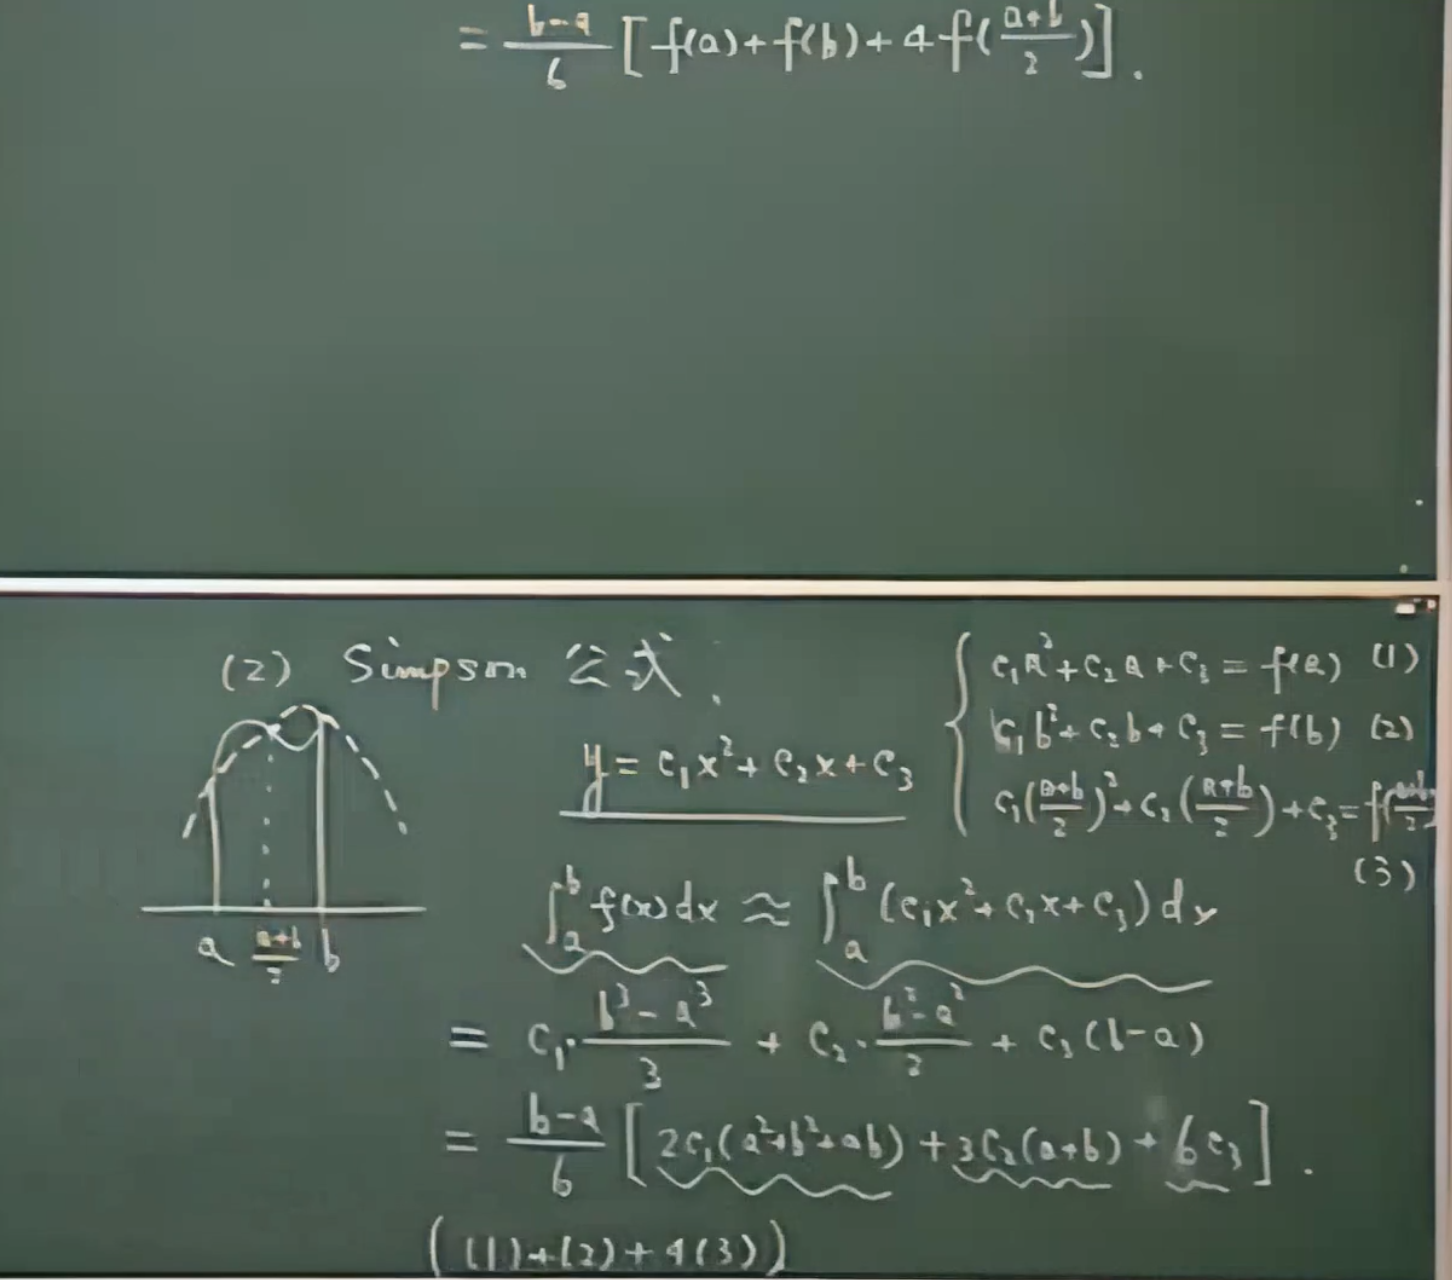 = \frac{b-a}{6} [f(a)+f(b)+4f(\frac{a+b}{2})].
(2) Simpson 公式.
y = c₁x²+c₂x+c₃
c₁a²+c₂a+c₃ = f(a) (1)
c₁b²+c₂b+c₃ = f(b) (2)
c₁(\frac{a+b}{2})²+c₂(\frac{a+b}{2})+c₃=f(\frac{a+b}{2})
(3)
a \frac{a+b}{2} b
∫_a^b f(x)dx ≈ ∫_a^b (c₁x²+c₂x+c₃)dx
= c₁·\frac{b³-a³}{3} + c₂·\frac{b²-a²}{2} + c₃(b-a)
= \frac{b-a}{6} [2c₁(a²+b²+ab)+3c₂(a+b)+6c₃].
((1)+(2)+4(3))